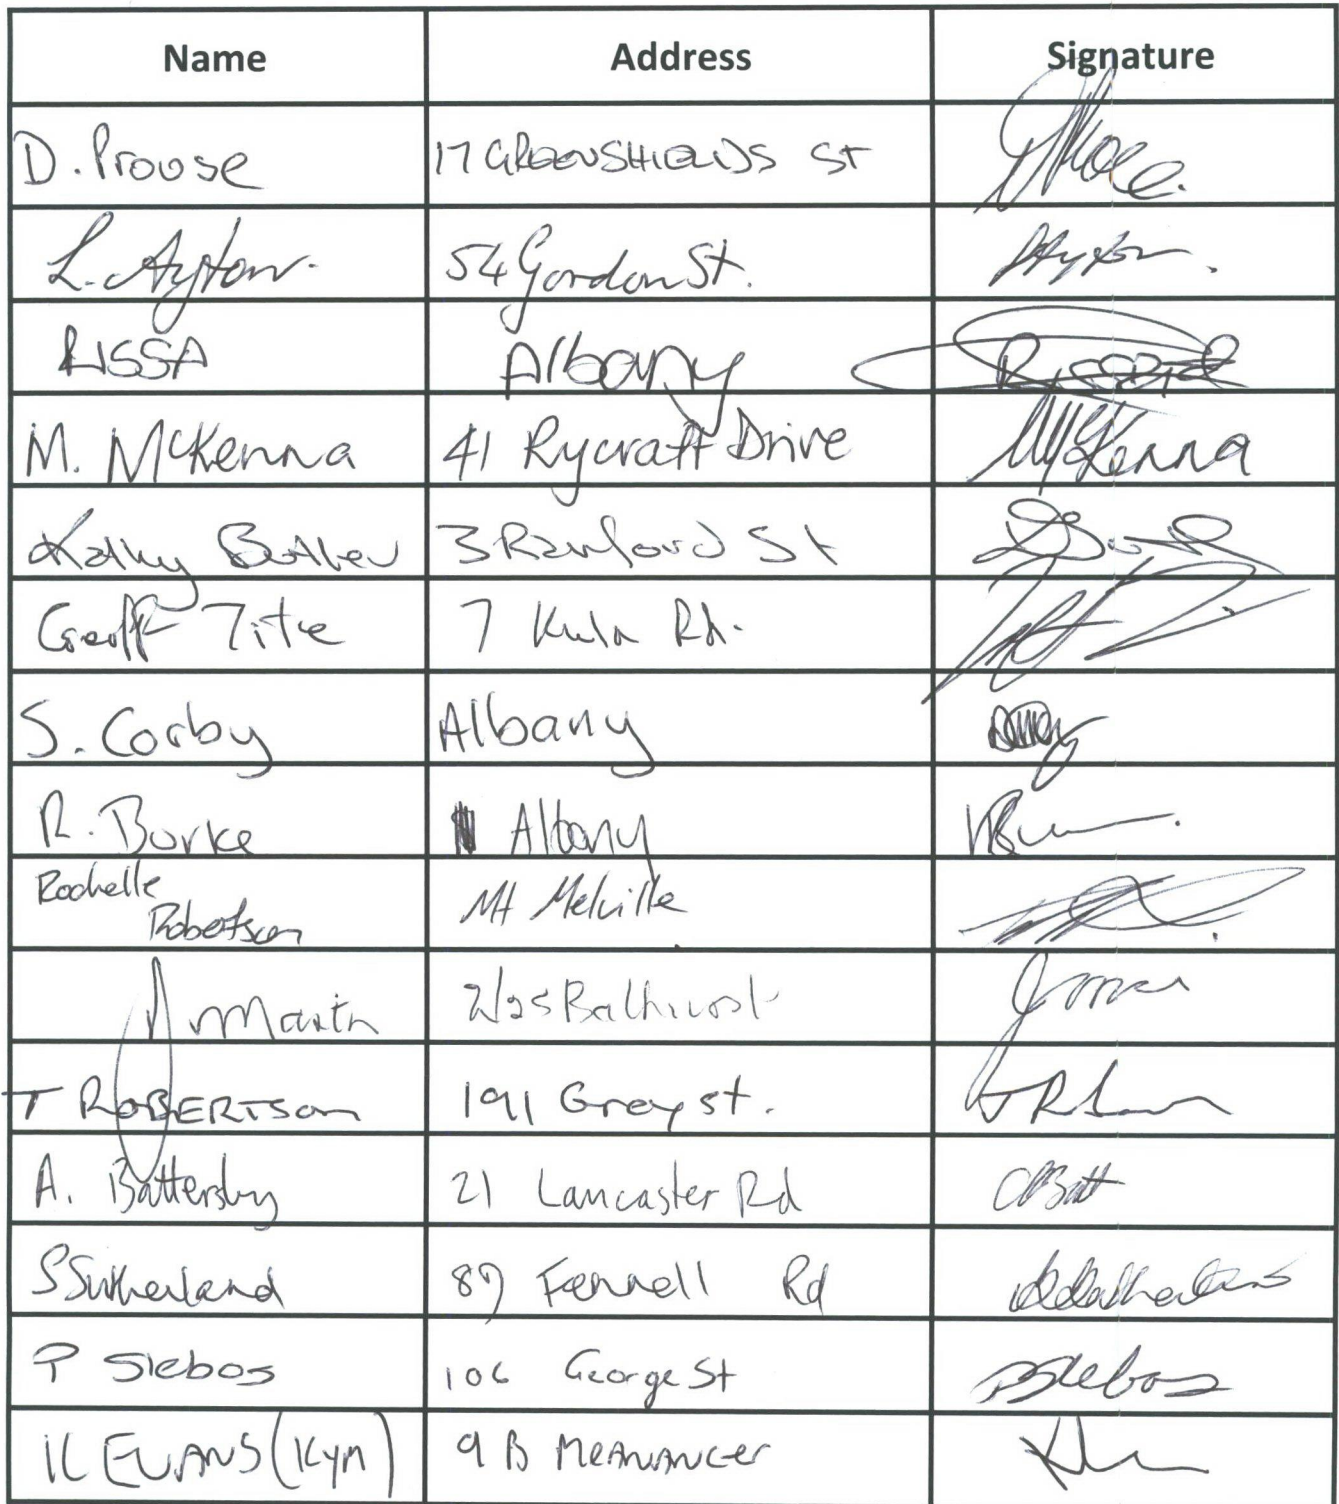 Name Address Signature
D. Prouse 17 GREENSHIELDS ST
L. Ayton. 54 Gordon St. LAyton.
RISSA Albany
M. McKenna 41 Rycraft Drive MMcKenna
Kathy Butler 3 Ranford St
Geoff Tite 7 Kula Rd.
S. Corby Albany
R. Burke Albany
Rochelle Mt Melville
Robertson
Martin 2/25 Bathurst
T ROBERTSON 191 Grey st.
A. Battersby 21 Lancaster Rd ABatt
S Sutherland 89 Fennell Rd
P Slebos 106 George St PSlebos
K EVANS (Kym) 9 B